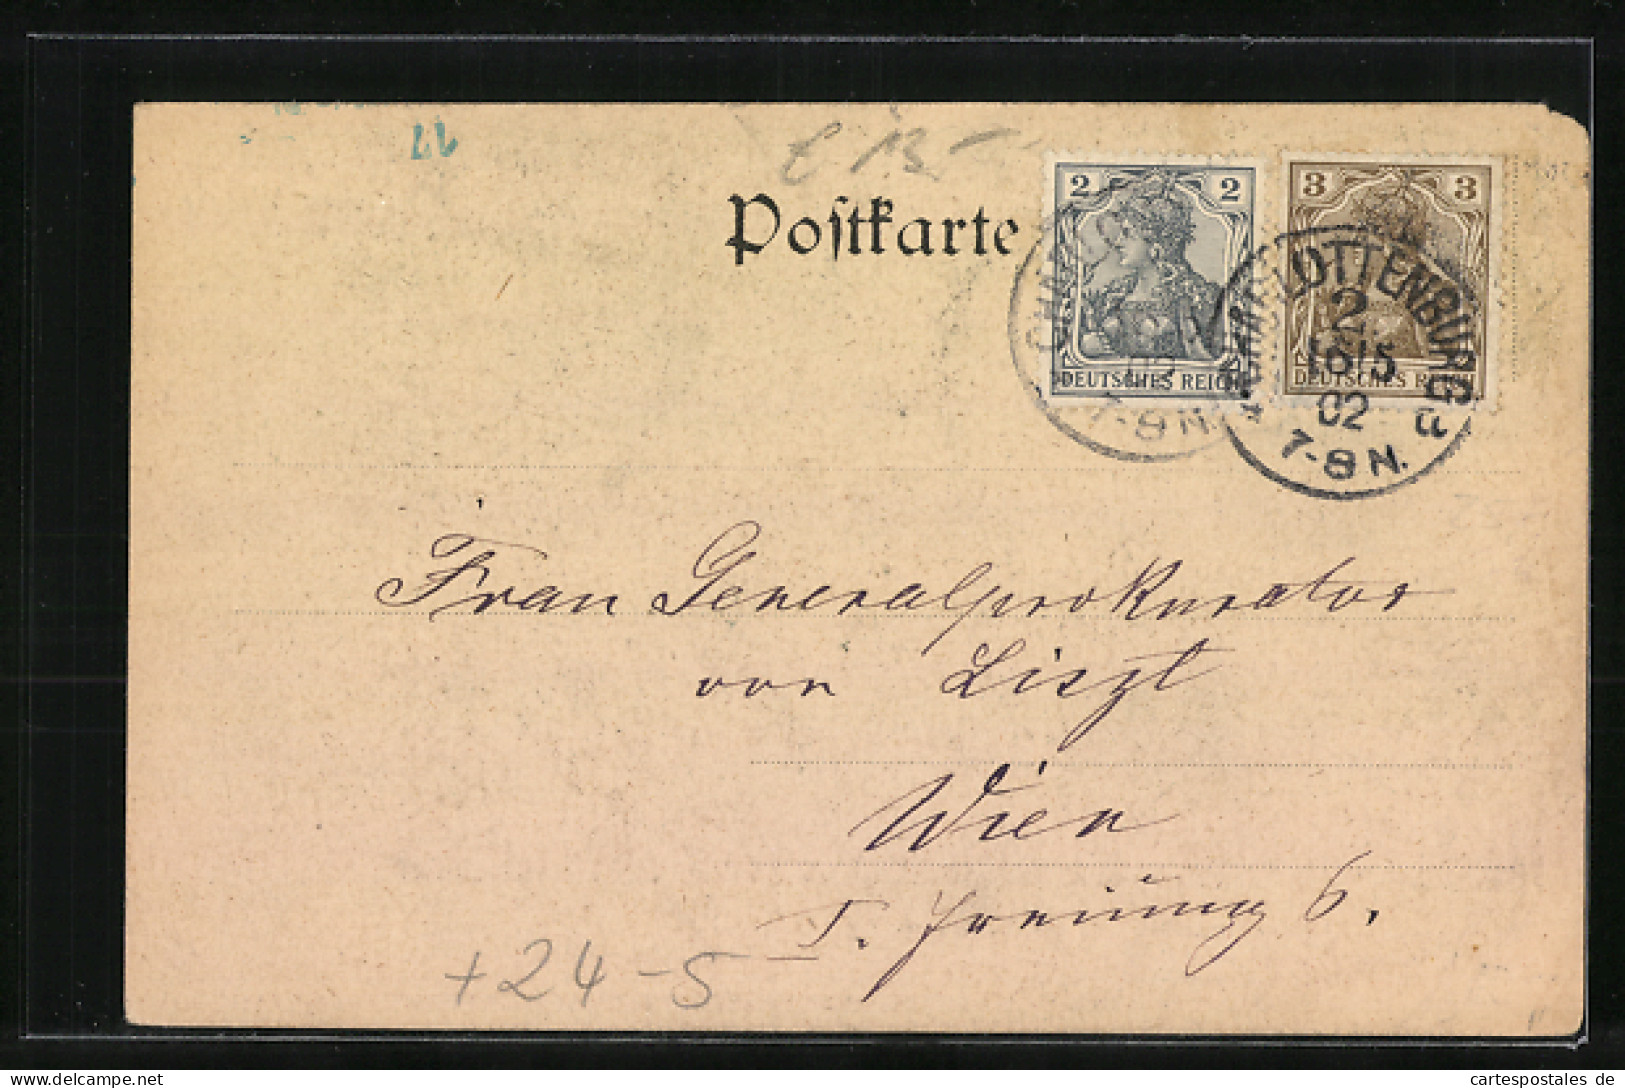 Postkarte
2 2
DEUTSCHES REICH
3 3
DEUTSCHES REICH
CHARLOTTENBURG
2
16/5
02
7-8 N.
7-8 N.
Frau Generalprokurator
von Liszt
Wien
I. Freiung 6.
+ 24 - 5
cartespostales de